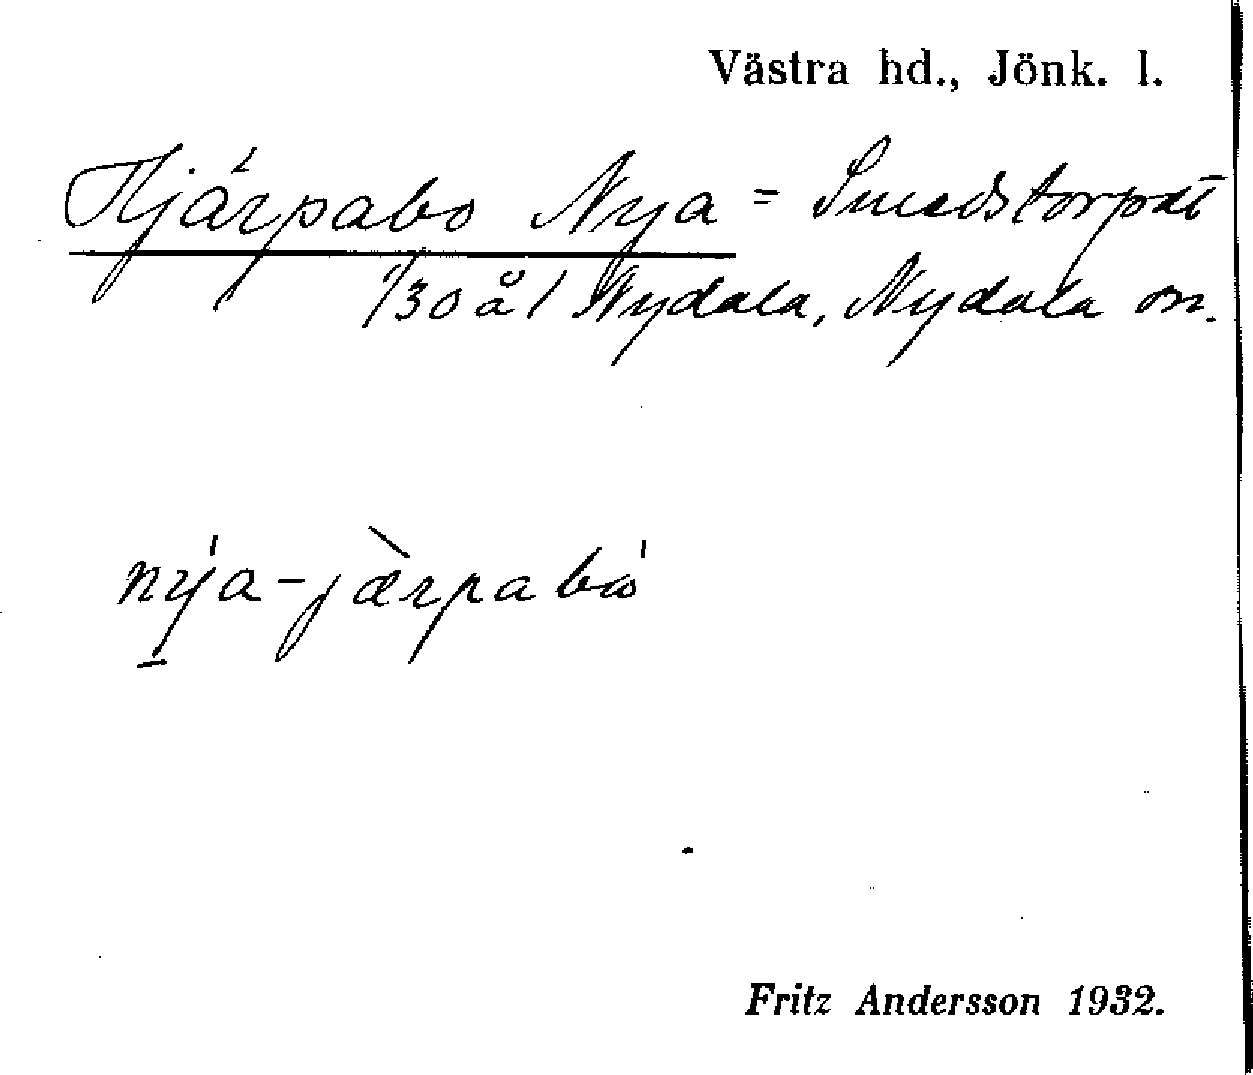 Västra hd., Jönk. l.
Hjärpabo Nya = Smedstorpet
1/30 å 1 Nydala, Nydala sn.
nya-jærpabo
Fritz Andersson 1932.